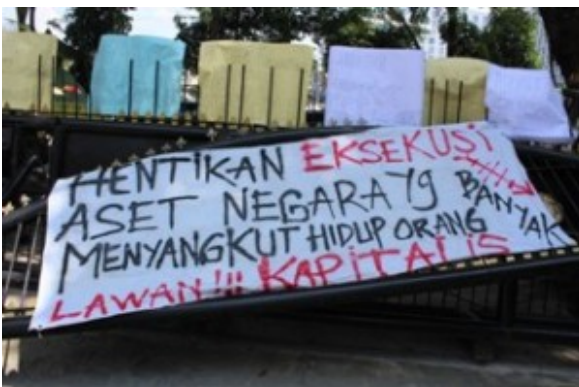 HENTIKAN EKSEKUSI
ASET NEGARA Yg BANYAK
MENYANGKUT HIDUP ORANG
LAWAN!!! KAPITALIS